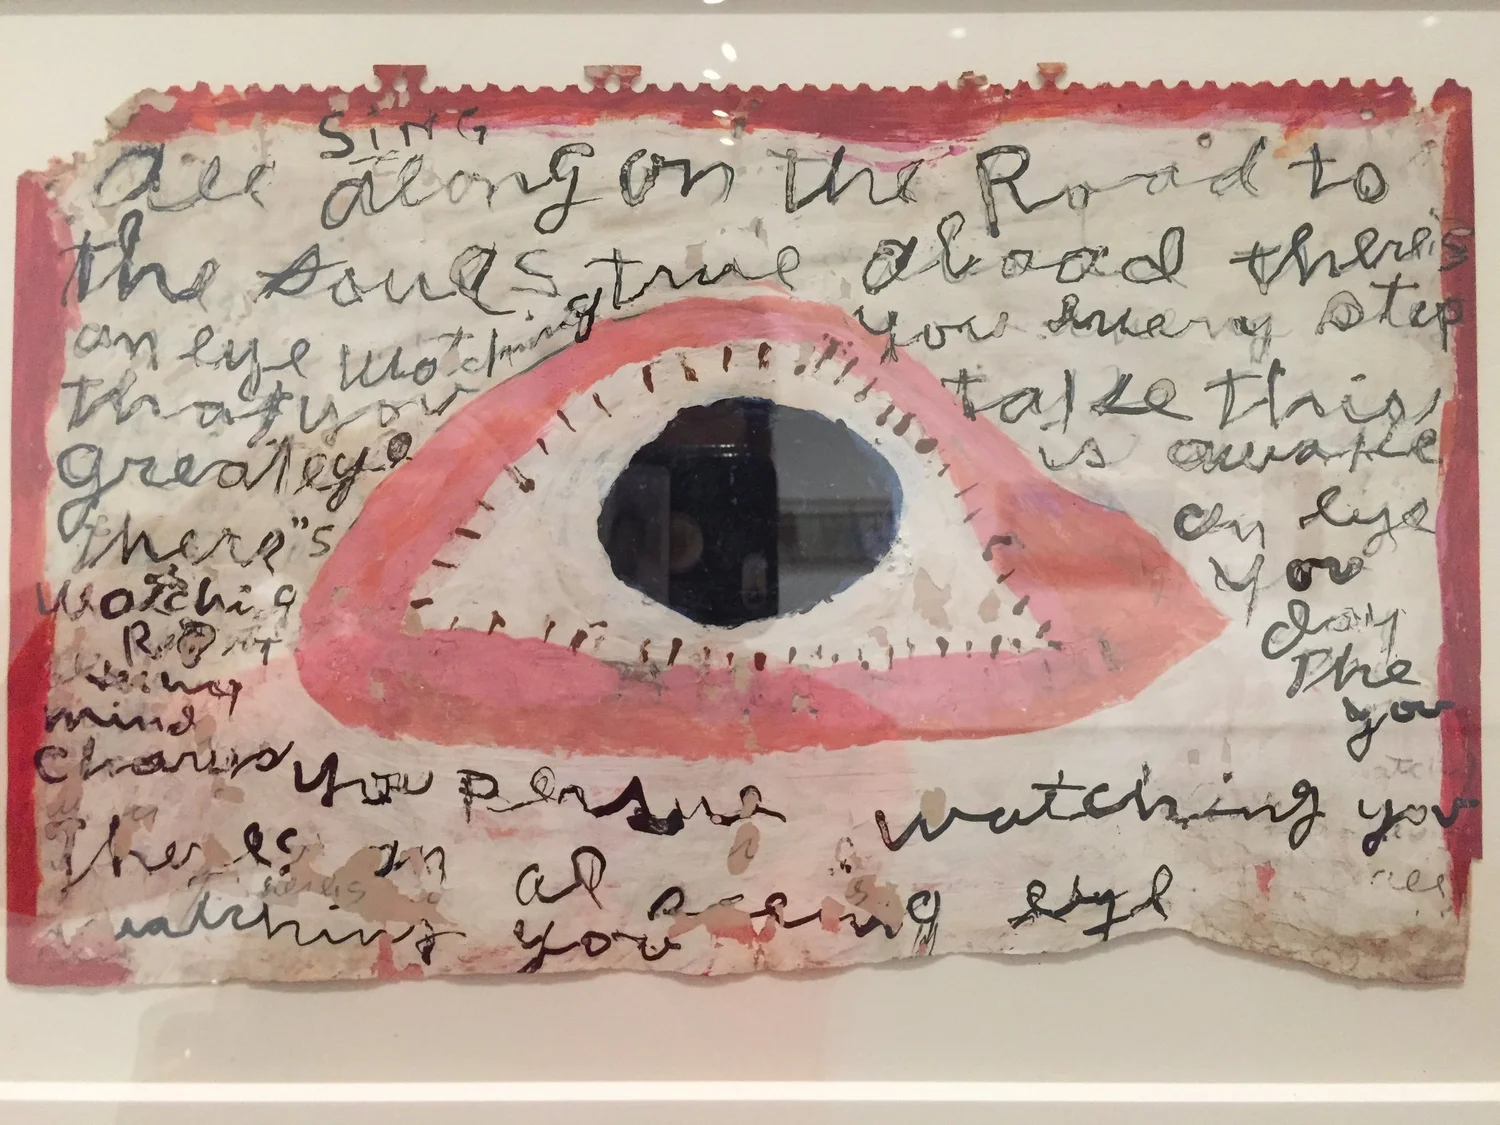 SiNG
all along on the Road to
the souls true aboad there's
an eye watching you every step
that you take this
greateye is awake
there"s an eye
watching you
day
mind the
you
charus you persue watching you
There is an al seeing eye
watching you